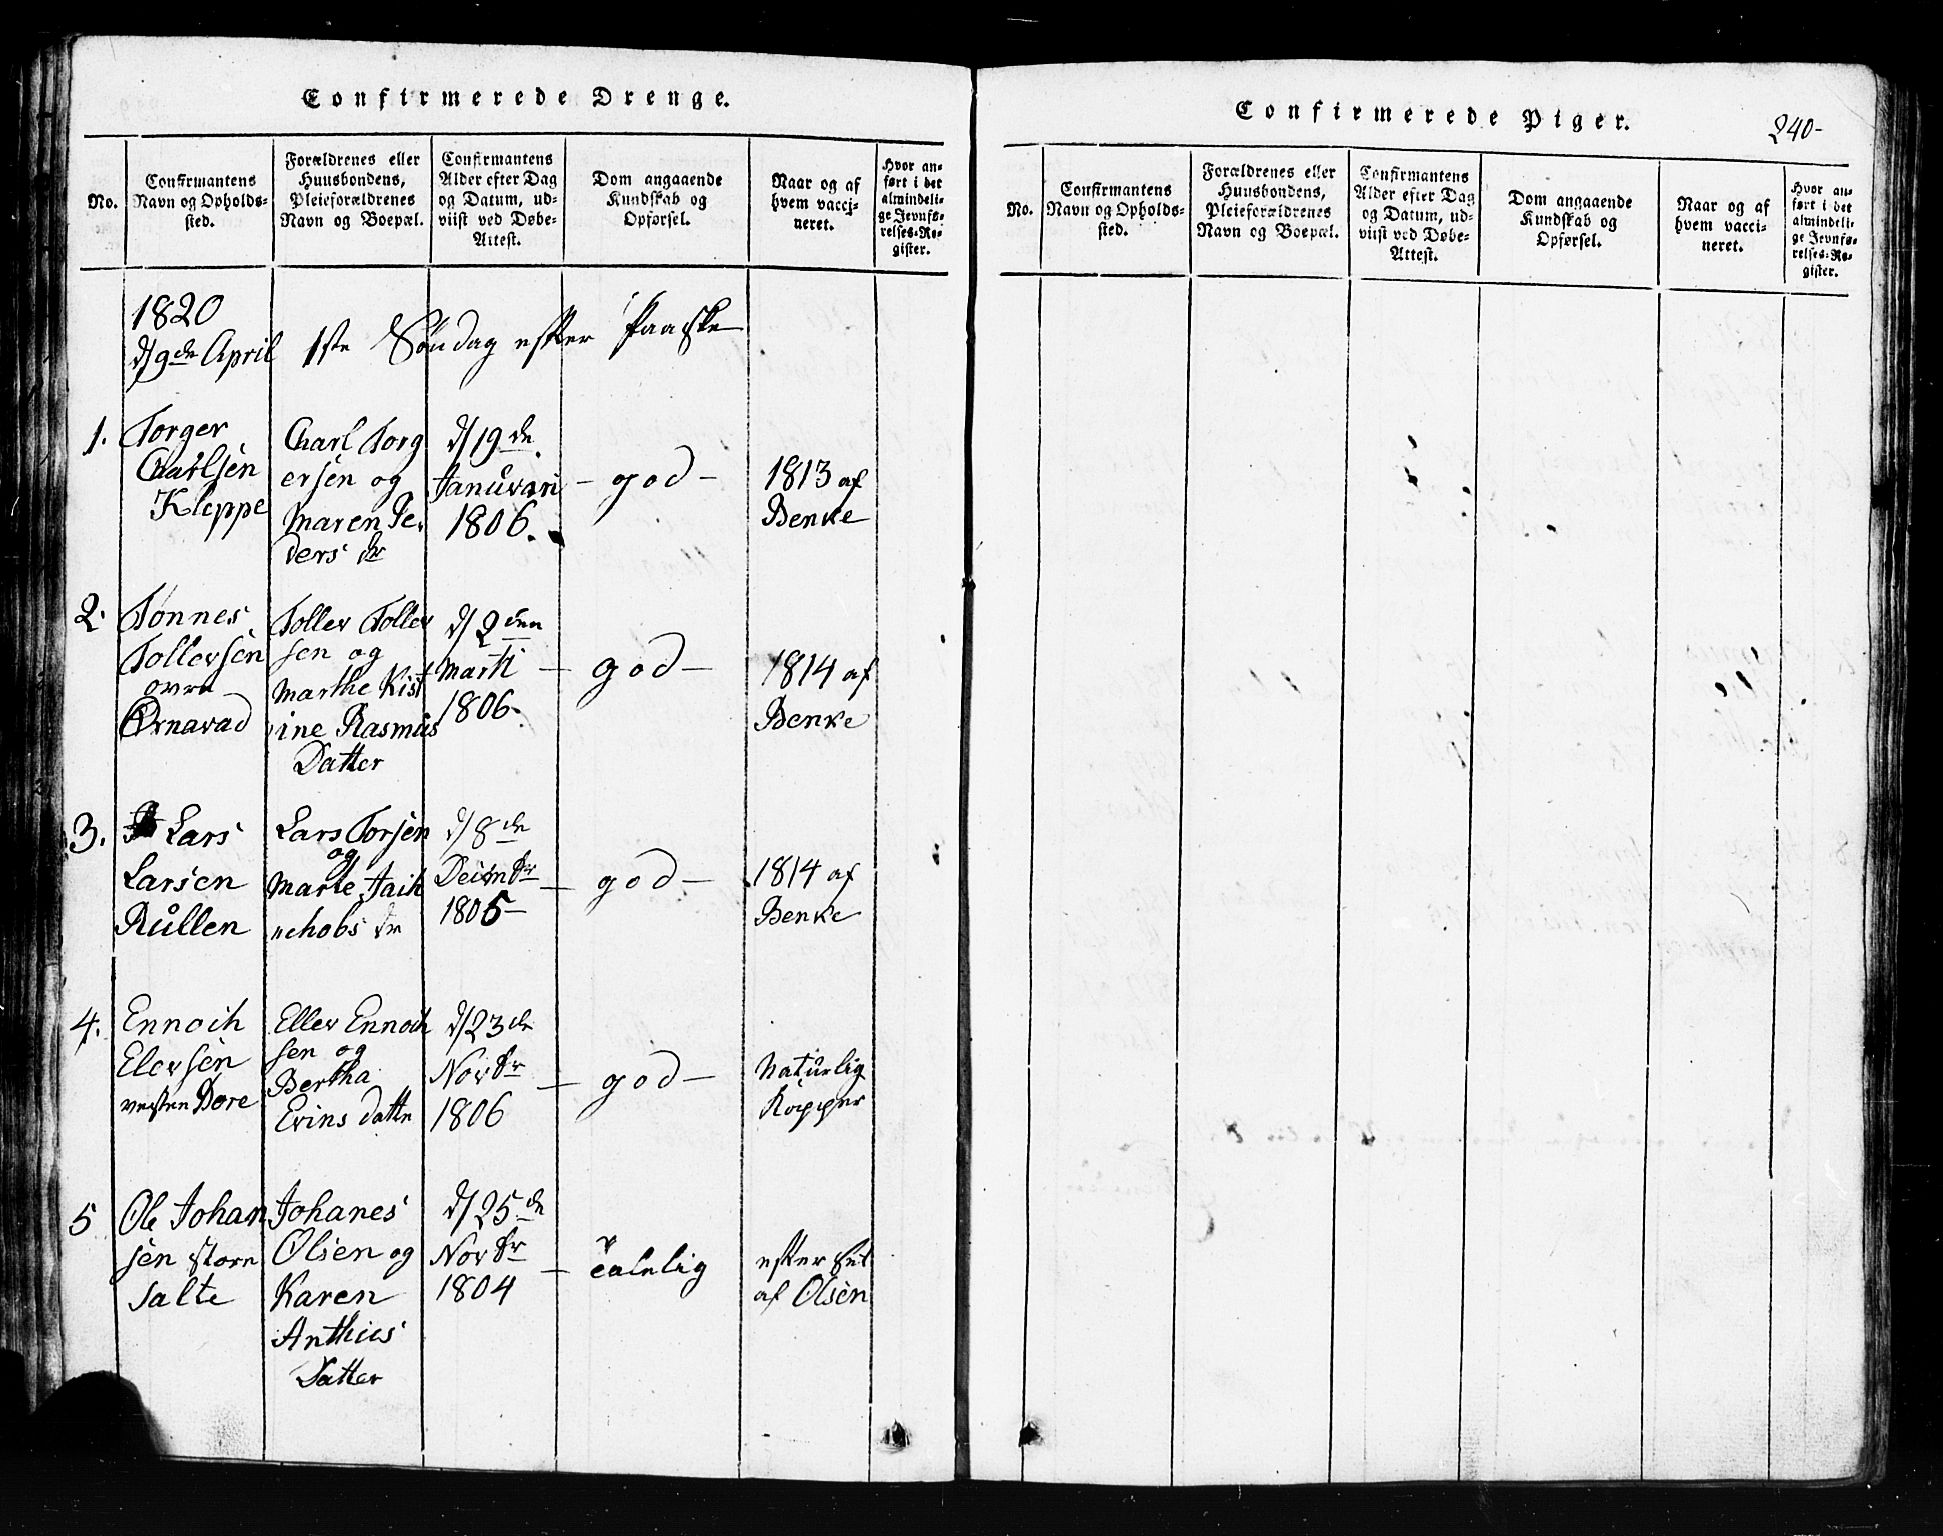 Confirmerede Drenge.
No.
Confirmantens
Navn og Opholds-
sted.
Forældrenes eller
Huusbondens,
Pleieforældrenes
Navn og Boepæl.
Confirmantens
Alder efter Dag
og Datum, ud-
viist ved Døbe-
Attest.
Dom angaaende
Kundskab og
Opførsel.
Naar og af
hvem vacci-
neret.
Hvor an-
ført i det
almindeli-
ge Jevnfø-
relses-Re-
gister.
1820
d/9de April 1ste Søndag efter Paaske
1.
Torger
Carlsen
Kleppe
Charl Torg
ersen og
Maren Pe-
ders dr
d/19de
Januvari
1806.
- god -
1813 af
Benke
2.
Tønnes
Tollersen
øvre
Ørnavad
Toller Toller
sen og
Marthe Kist
ine Rasmus
Datter
d/2den
Marti
1806.
- god -
1814 af
Benke
3.
Lars
Larsen
Rullen
Lars Torsen
og
Marte Jaik
"chobs dr
d/8de
Decmbr
1805 -
- god -
1814 af
Benke
4.
Ennoch
Elersen
vesten Bore
Eller Ennoch
sen og
Bertha
Evins datte
d/23de
Novbr
1806
- god -
Naturlig
Kopper
5
Ole Johan
sen store
Salte
Johanes
Olsen og
Karen
Anthus
Datter
d/25de
Novbr
1804
-
efter
af Olsen
Confirmerede Piger.
240-
No.
Confirmantens
Navn og Opholds-
sted.
Forældrenes eller
Huusbondens,
Pleieforældrenes
Navn og Boepæl.
Confirmantens
Alder efter Dag
og Datum, ud-
viist ved Døbe-
Attest.
Dom angaaende
Kundskab og
Opførsel.
Naar og af
hvem vacci-
neret.
Hvor an-
ført i det
almindeli-
ge Jevnfø-
relses-Re-
gister.